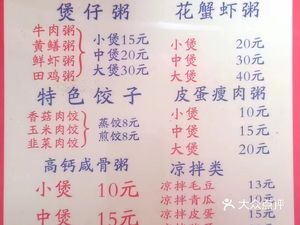 煲仔粥
牛肉粥
黄鳝粥
鲜虾粥
田鸡粥
小煲15元
中煲20元
大煲30元
花蟹虾粥
小煲 20元
中煲 30元
大煲 40元
特色饺子
香菇肉饺
玉米肉饺
韭菜肉饺
蒸饺8元
煎饺8元
皮蛋瘦肉粥
小煲 10元
中煲 15元
大煲 20元
高钙咸骨粥
小煲 10元
中煲 15元
凉拌类
凉拌毛豆 13元
凉拌青瓜 10元
凉拌皮蛋
大众点评